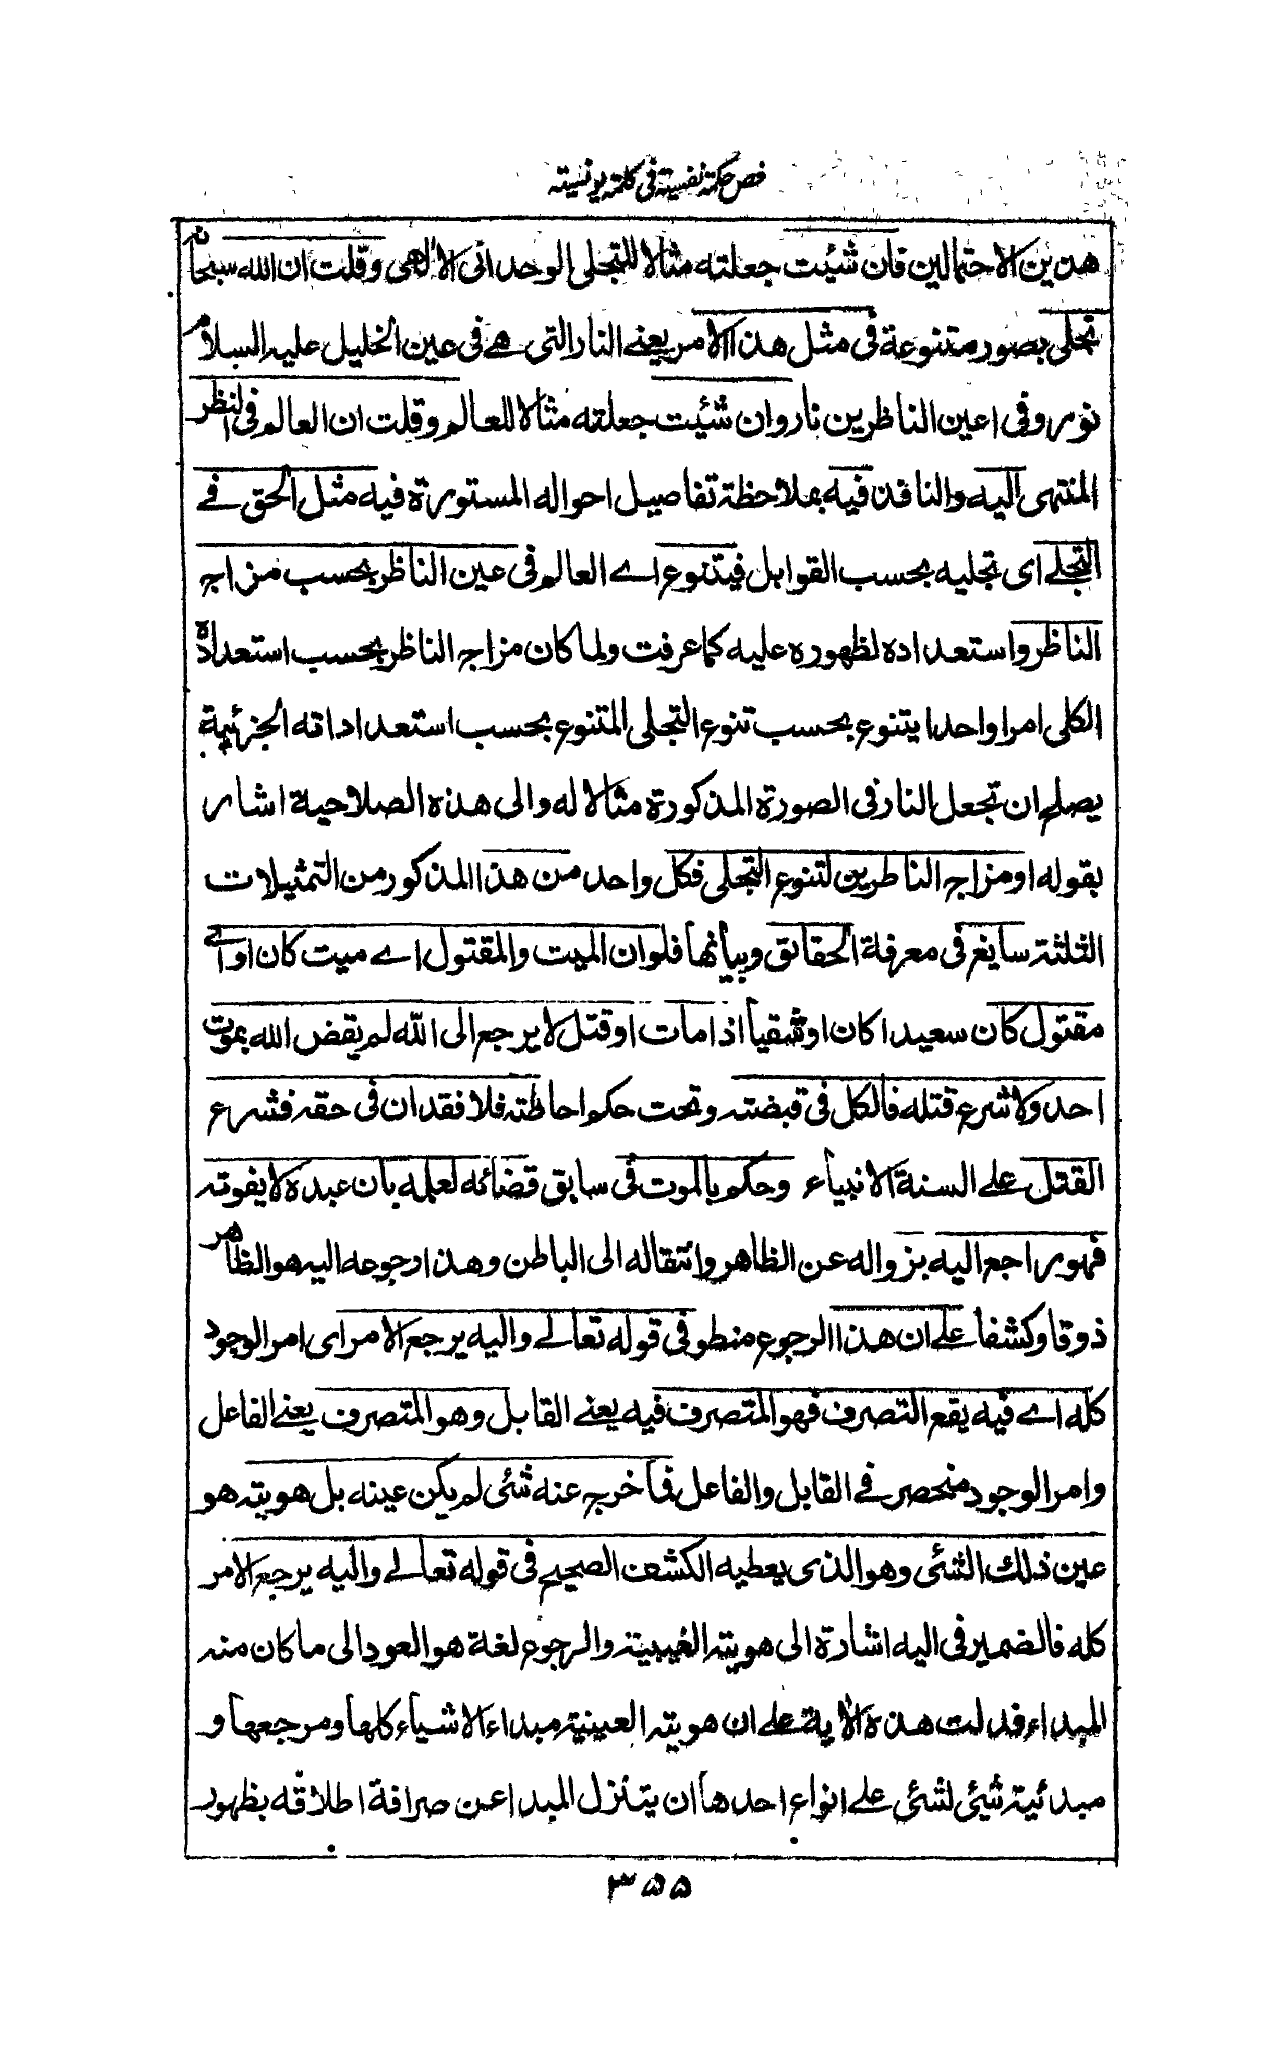 فص حكمة نفسية في كلمة يونسية
هذين الاحتمالين فان شئت جعلته مثالا للتجلي الوحداني الالهي وقلت ان الله سبحانه
تجلى بصور متنوعة في مثل هذا الامر يعنے النار التي هے في عين الخليل عليه السلام
نور وفي اعين الناظرين نار وان شئت جعلته مثالا للعالم وقلت ان العالم في النظر
المنتهى اليه والناقد فيه بملاحظة تفاصيل احواله المستورة فيه مثل الحق فے
التجلے اى تجليه بحسب القوابل فيتنوع اے العالم في عين الناظر بحسب مزاج
الناظر واستعداده لظهوره عليه كما عرفت ولما كان مزاج الناظر بحسب استعداده
الكلي امرا واحدا يتنوع بحسب تنوع التجلي المتنوع بحسب استعداداته الجزئية
يصلح ان تجعل النار في الصورة المذكورة مثالا له والى هذه الصلاحية اشار
بقوله او مزاج الناظرين لتنوع التجلي فكل واحد من هذا المذكور من التمثيلات
الثلثة سايغ في معرفة الحقايق وبيانها فلو ان الميت والمقتول اے ميت كان او اے
مقتول كان سعيدا كان او شقيا اذا مات او قتل لا يرجع الى الله لم يقض الله بموت
احد ولا شرع قتله فالكل في قبضته وتحت حكم احاطته فلا فقدان في حقه فشرع
القتل علے السنة الانبياء وحكم بالموت في سابق قضائه لعلمه بان عبده لا يفوته
فهو راجع اليه بزواله عن الظاهر وانتقاله الى الباطن وهذا رجوعه اليه هو الظاهر
ذوقا وكشفا علے ان هذا الرجوع منطو في قوله تعالے واليه يرجع الامر اى امر الوجود
كله اے فيه يقع التصرف فهو المتصرف فيه يعنے القابل وهو المتصرف يعنے الفاعل
وامر الوجود منحصر في القابل والفاعل فما خرج عنه شئى لم يكن عينه بل هويته هو
عين ذلك الشئى وهو الذى يعطيه الكشف الصحيح في قوله تعالے واليه يرجع الامر
كله فالضمير في اليه اشارة الى هويته الغيبية والرجوع لغة هو العود الى ما كان منه
المبداء فدلت هذه الاية علے ان هويته العينية مبداء الاشياء كلها ومرجعها و
مبدئية شيئى لشئى علے انواع احدها ان يتنزل المبدا عن صرافة اطلاقه بظهور
۳۵۵